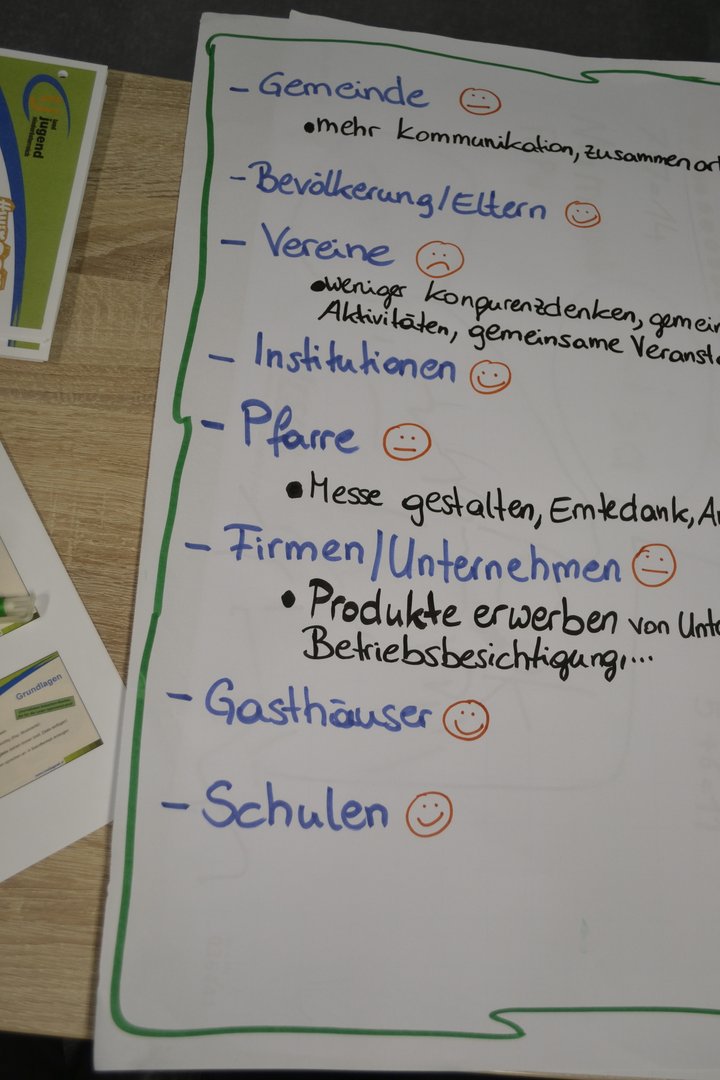 - Gemeinde
• mehr kommunikation, zusammenar
- Bevölkerung/Eltern
- Vereine
• weniger konpurenzdenken, gemein
Aktivitäten, gemeinsame Veransta
- Institutionen
- Pfarre
• Messe gestalten, Erntedank, A
- Firmen/Unternehmen
• Produkte erwerben von Unte
Betriebsbesichtigung,...
- Gasthäuser
- Schulen
jugend
Grundlagen